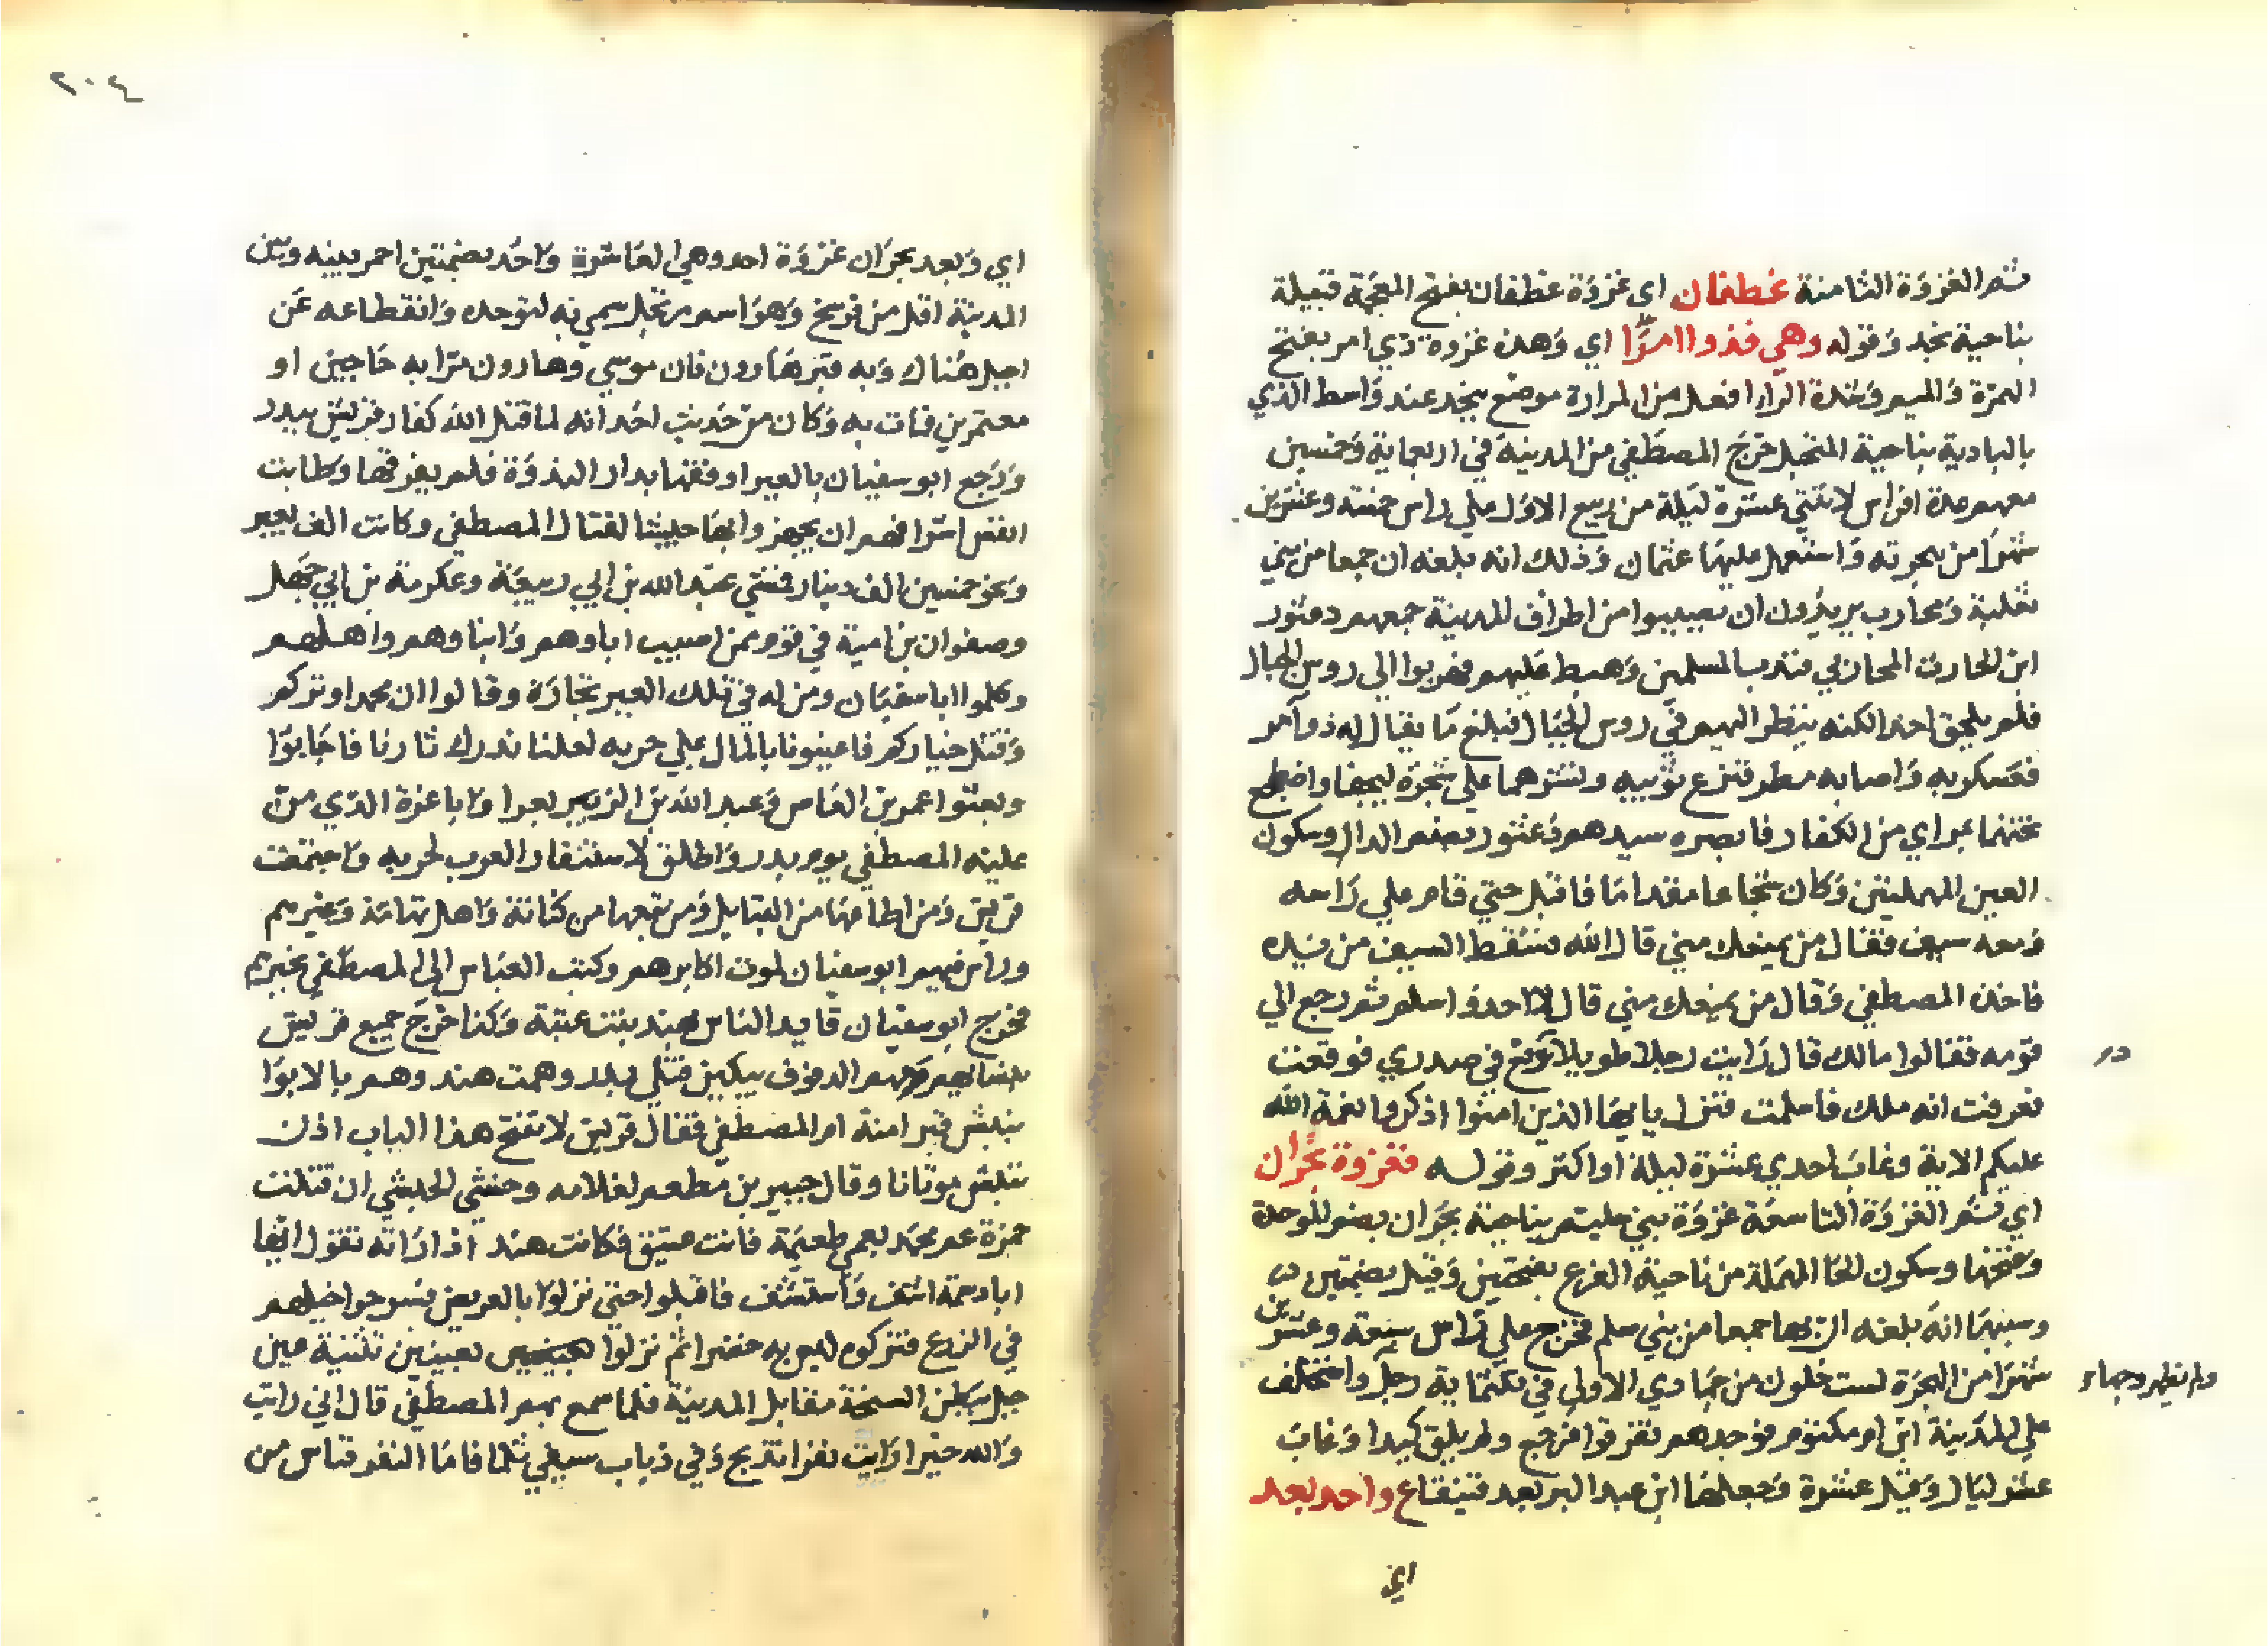 ثم الغزوة الثامنة غطفان اي غزوة غطفان بفتح المعجمة قبيلة
بناحية نجد وقوله وهي فذوا امرّا اي وهذه غزوة ذي امر بفتح
الهمزة والميم وشدة الرا افعل من المرارة موضع بنجد عند واسط الذي
بالبادية بناحية النخيل خرج المصطفي من المدينة في اربعماية وخمسين
معهم عدة افراس لاثنتي عشرة ليلة من ربيع الاول علي راس خمسة وعشرين
شهرا من هجرته واستعمل عليها عثمان وذلك انه بلغه ان جمعا من بني
ثعلبة ومحارب يريدون ان يصيبوا من اطراف المدينة جمعهم دعثور
ابن الحارث المحاربي فندب المسلمين وهبط عليهم فهربوا الي روس الجبال
فلم يلحق احدا لكنه ينظر اليهم في روس الجبال فبلغ ما يقال له ذو آمر
فعسكر به واصابه مطر فنزع ثوبيه ونشرهما علي شجرة ليجفا واضطجع
تحتهما بمراي من الكفار فابصره سيدهم دعثور بضم الدال وسكون
العين المهملتين وكان شجاعا مقداما فاقبل حتي قام علي راسه
ومعه سيف فقال من يمنعك مني قال الله فسقط السيف من يده
فاخذه المصطفي وقال من يمنعك مني قال لا احد واسلم ثم رجع الي
قومه فقالوا مالك قال رايت رجلا طويلا دفع في صدري فوقعت
فعرفت انه ملك فاسلمت فنزل يايها الذين امنوا اذكروا نعمة الله
عليكم الاية وغاب احدي عشرة ليلة او اكثر وقوله فغزوة بحران
اي ثم الغزوة التاسعة غزوة بني سليم بناحية بحران بضم الموحدة
وفتحها وسكون الحا المهملة من ناحية الفرع بفتحتين وقيل بضمتين
وسببها انه بلغه ان بها جمعا من بني سليم فخرج علي راس سبعة وعشرين
شهرا من الهجرة لست خلون من جمادي الاولي في ثلثماية رجل واستخلف
علي المدينة ابن ام مكتوم فوجدهم تفرقوا فرجع ولم يلق كيدا وغاب
عشر ليال وقيل عشرة وجعلها ابن عبد البر بعد قينقاع واحد بعد
ولم يظهر وجها
اي
٢٠٤
اي وبعد بحران غزوة احد وهي العاشرة واحد بضمتين احمر بينه وبين
المدينة اقل من فرسخ وهو اسم مرتجل سمي به لتوحده وانقطاعه عن
اجبل هناك وبه قبر هارون فان موسي وهارون مرا به حاجين او
معتمرين فمات به وكان من حديث احد انه لما قتل الله كفار قريش ببدر
ورجع ابو سفيان بالعير اوقفها بدار الندوة فلم يفرقها وطابت
انفس اشرافهم ان يجهزوا بها جيشا لقتال المصطفي وكانت الف بعير
ونحو خمسين الف دينار فمشي عبد الله بن ابي ربيعة وعكرمة بن ابي جهل
وصفوان بن امية في قوم ممن اصيب اباوهم وابناوهم واهلهم
وكلموا ابا سفيان ومن له في تلك العير تجارة وقالوا ان محمدا وتركم
وقتل خياركم فاعينونا بالمال علي حربه لعلنا ندرك ثارنا فاجابوا
وبعثوا عمرو بن العاص وعبد الله بن الزبير وابا عزة الذي من
عليه المصطفي يوم بدر واطلق لاستنفار العرب لحربه واجتمعت
قريش ومن اطاعها من القبايل ومن تبعها من كنانة واهل تهامة وغيرهم
وراس فيهم ابو سفيان لموت اكابرهم وكتب العباس الي المصطفي يخبرهم
فخرج ابو سفيان قايد الناس بهند بنت عتبة وكذا خرج جميع قريش
بنسايهم ومعهم الدفوف يبكين قتلي بدر وهمت هند وهم بالابوا
بنبش قبر امنة ام المصطفي فقال قريش لا تفتح هذا الباب اذن
تنبش موتانا وقال جبير بن مطعم لغلامه وحشي الحبشي ان قتلت
حمزة عم محمد بعمي طعيمة فانت عتيق فكانت هند اذا راته تقول ايها
ابا دسمة اشف واستشف فاقبلوا حتي نزلوا بالعريض فسرحوا خيلهم
في الزرع فتركوه ليس به خضرا ثم نزلوا بعينين تثنية عين
جبل ببطن السبخة مقابل المدينة فلما سمع بهم المصطفي قال اني رايت
والله خيرا رايت بقرا تذبح وفي ذباب سيفي ثلما فاما البقر فناس من